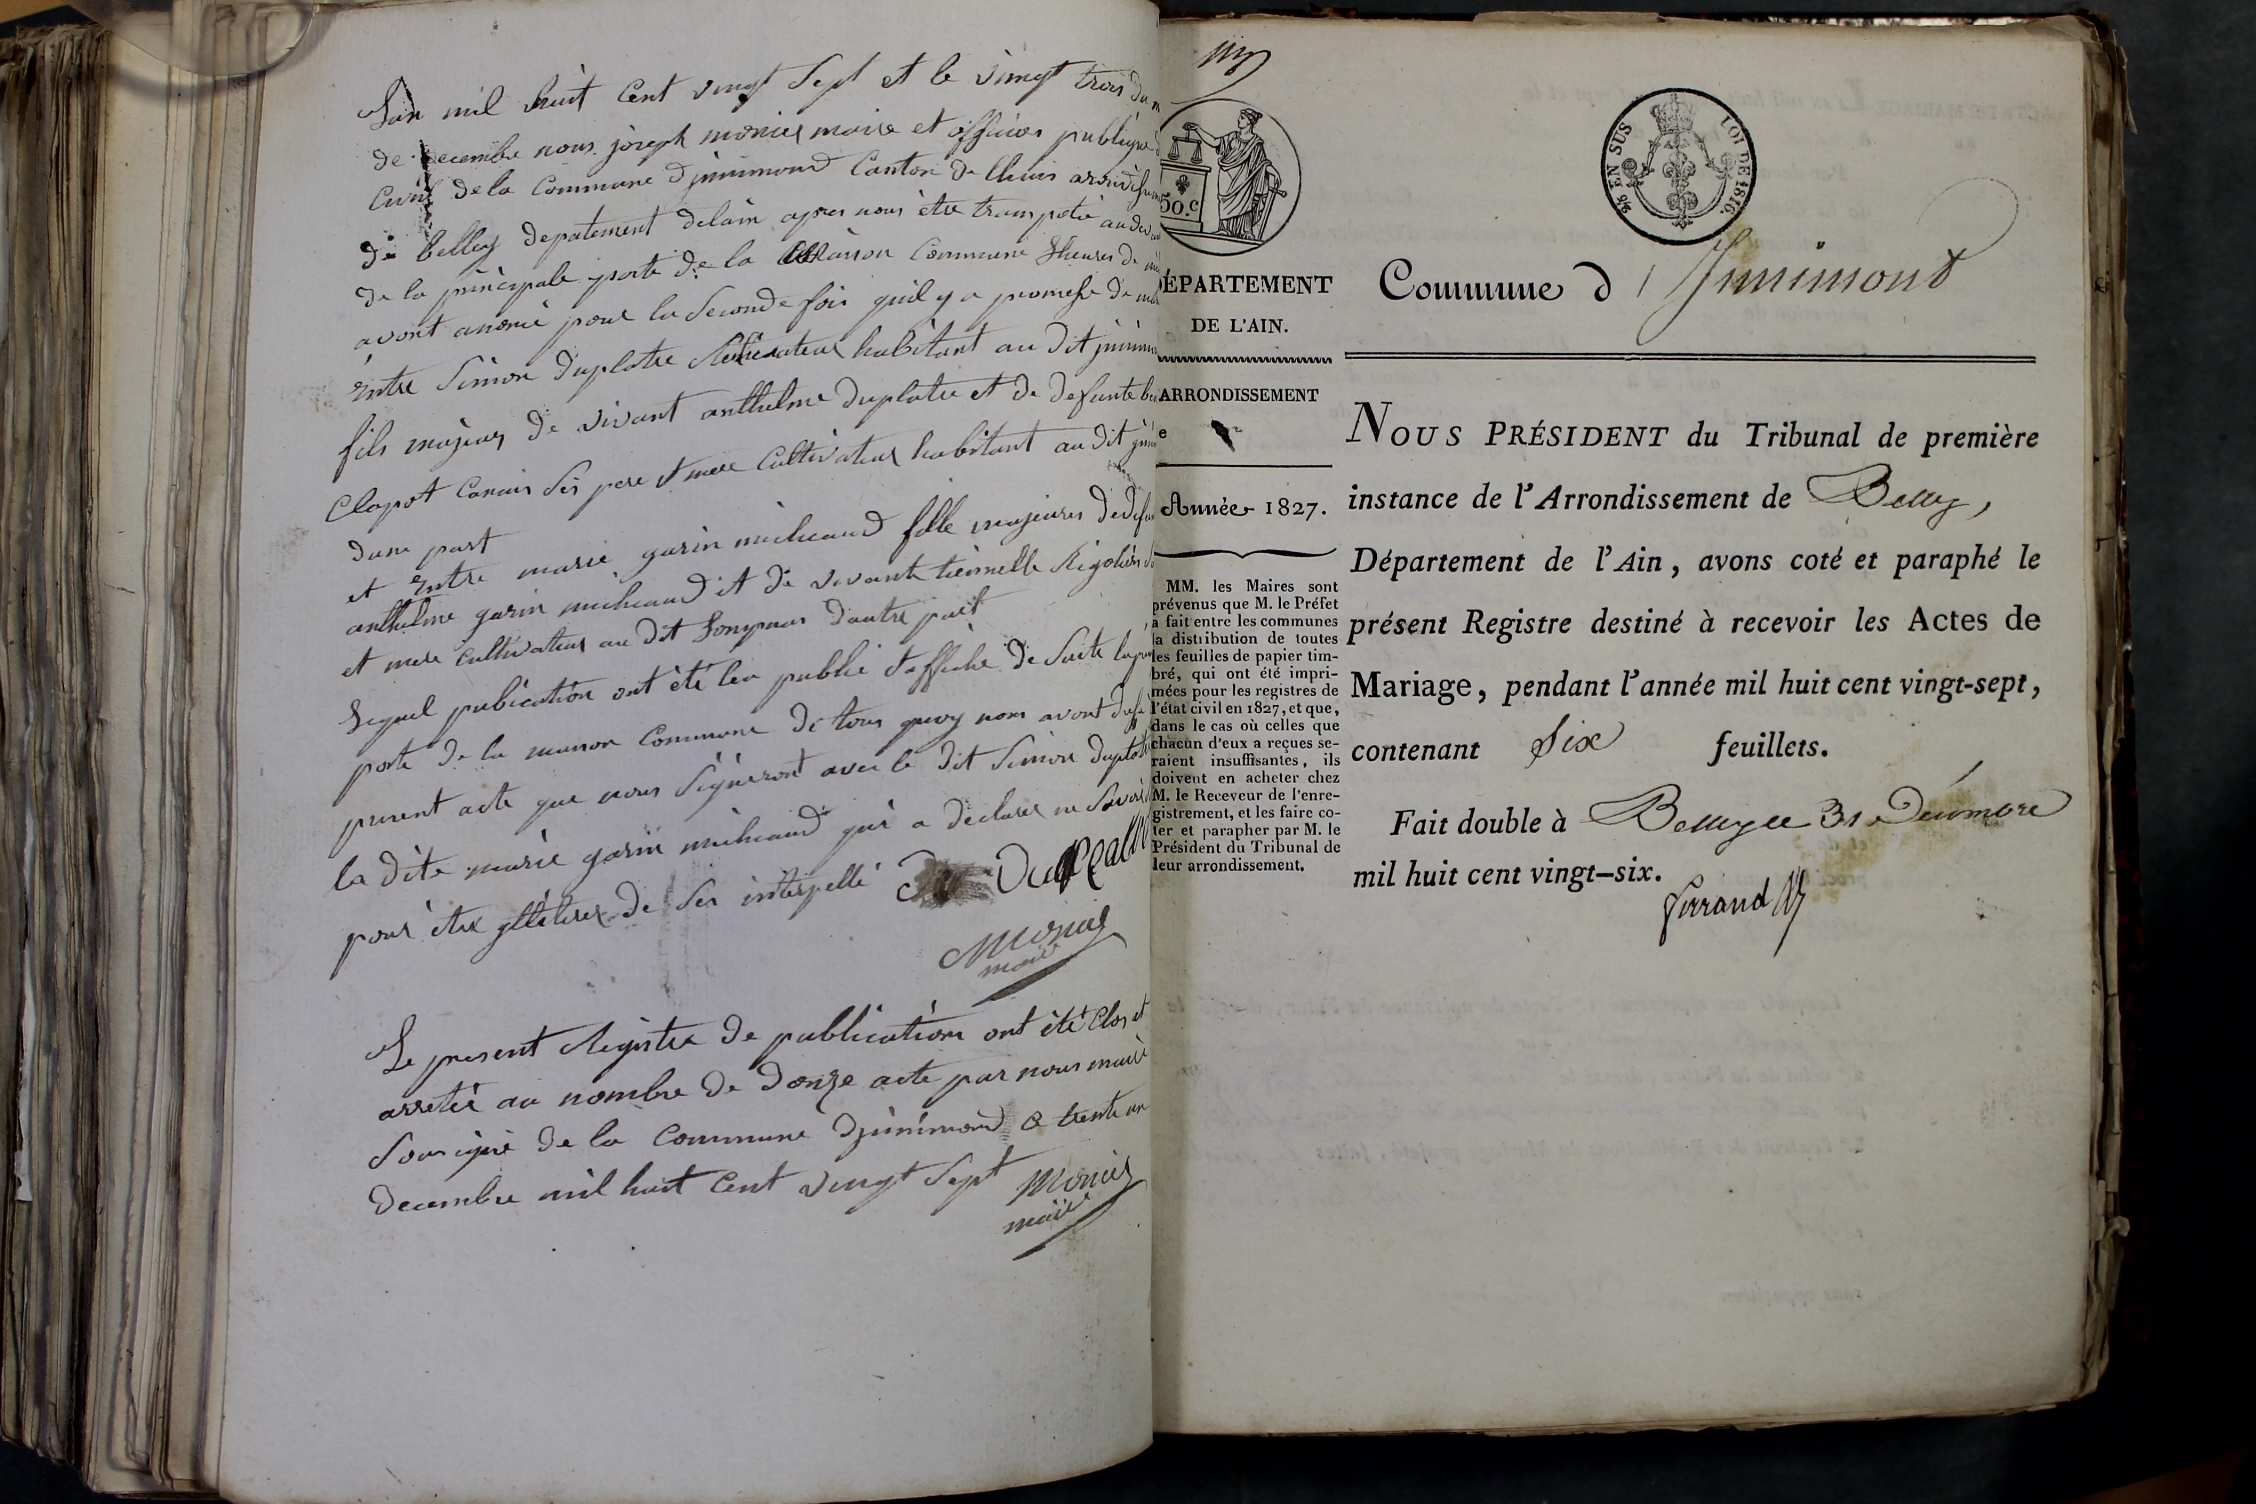 Lan mil huit Cent vingt Sept et le vingt trois du
de decembre nous joseph monier maire et officier publique
Civil de la Commune djnnimond Canton de lhuis arrondissem
de belley depatement delain apres nous être transporté au dev
de la principale porte de la Maison Commune 8 heures de
avont anoncé pour la Seconde fois quil y a promesse de
Entre Simon duplatre Cultivateur habitant au dit jnnim
fils majeur de vivant anthelme duplatre et de defunte
Clapot Canain Ses pere et mere Cultivateur habitant au dit
dune part
et Entre marie garin micheaud fille majeures de def
anthelme garin micheaud et de vivante
et mere cultivateur au dit d'autre part
Lequel publication ont été leu publié et affiché de Suite
porte de la maison Commune de tous quoy nous avont
present acte que nous Signeront avec le dit Simon duplat
la dite marie garin micheaud qui a declarer ne Savoir
pour être de Ses interpellé
Monier
maire
Le present Registre de publication ont été Clos et
arretér au nombre de donze acte par nous maire
Sousigné de la Commune djnnimond Ce trente un
decembre mil huit Cent vingt Sept Monier
maire
50.c
DÉPARTEMENT
DE L'AIN.
ARRONDISSEMENT
Année 1827.
MM. les Maires sont
prévenus que M. le Préfet
a fait entre les communes
la distribution de toutes
les feuilles de papier tim-
bré, qui ont été impri-
mées pour les registres de
l'état civil en 1827, et que,
dans le cas où celles que
chacun d'eux a reçues se-
raient insuffisantes, ils
doivent en acheter chez
M. le Receveur de l'enre-
gistrement, et les faire co-
ter et parapher par M. le
Président du Tribunal de
leur arrondissement.
EN SUS LOI DE 1816.
Commune d'Innimond
NOUS PRÉSIDENT du Tribunal de première
instance de l'Arrondissement de Belley,
Département de l'Ain, avons coté et paraphé le
présent Registre destiné à recevoir les Actes de
Mariage, pendant l'année mil huit cent vingt-sept,
contenant Six feuillets.
Fait double à Belley ce 31 Décembre
mil huit cent vingt-six.